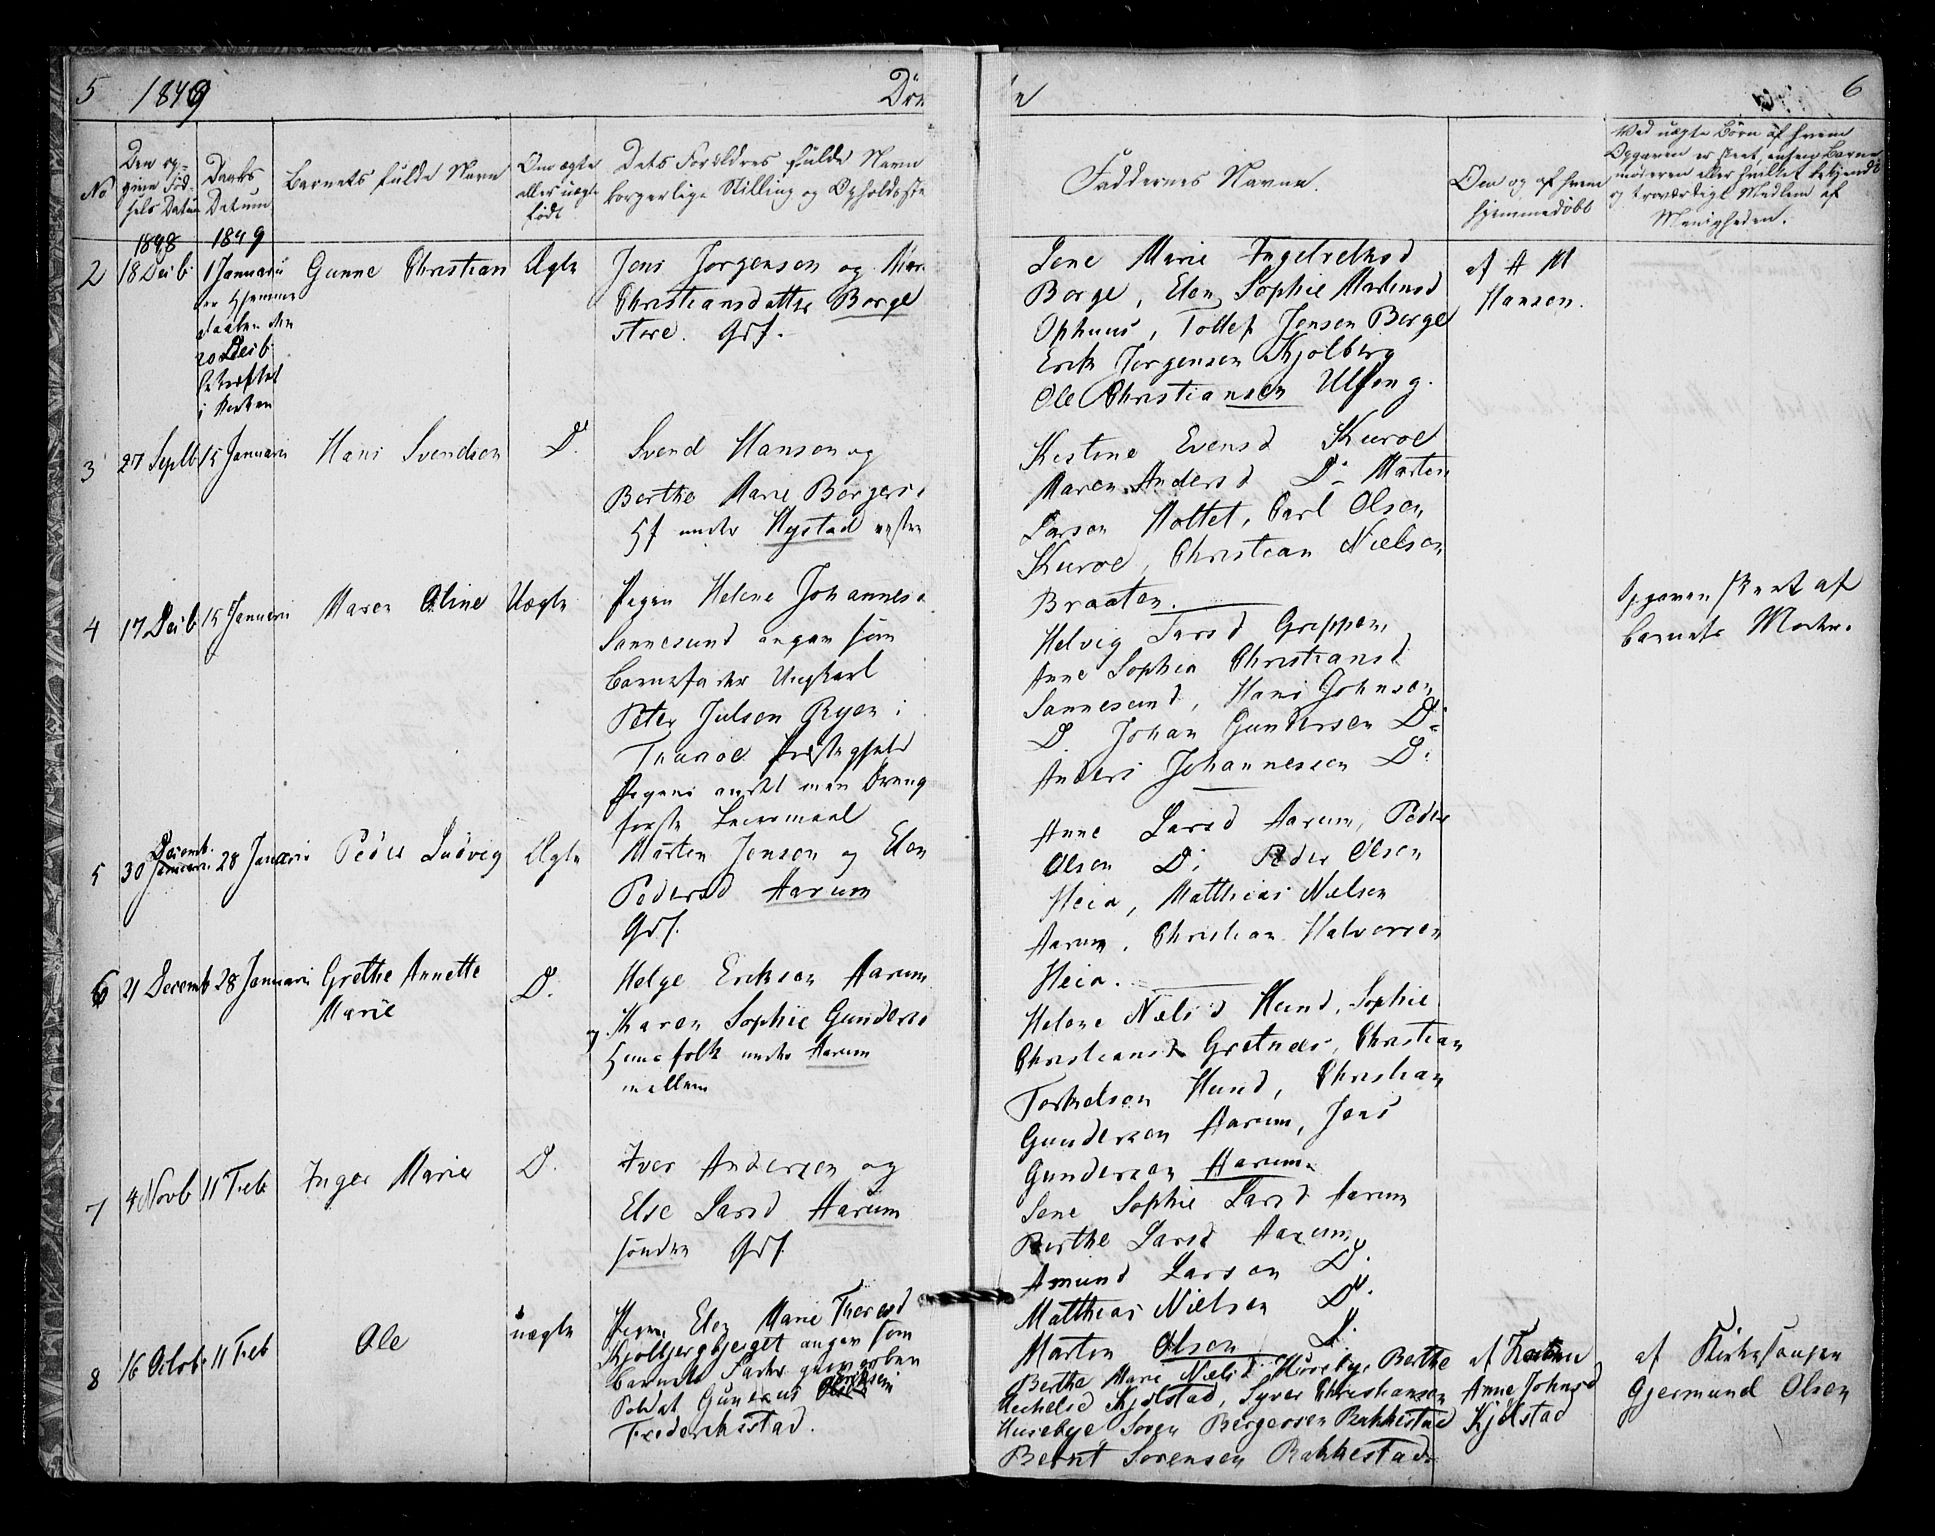 5 1849 Dø
6
No
Den op-
given Fød-
sels Datum
Daabs
Datum
Barnets fulde Navn
Om ægte
eller uægte
født
Dets Forældres fulde Navn
borgerlige Stilling og Opholdsste
Faddernes Navne.
Om og af hvem
hjemmedøbt
Ved uægte Børn af hvem
Opgaven er skeet, enten Barne
moderen eller hvilket bekjendt
og troværdigt Medlem af
Menigheden.
1848 1849
2 18 Decb 1 Januarii Gunne Christian Ægte
er hjemme
døbten den
20 Decb
i Kirken
Jens Jorgensen og Mar
Christiansdatter Borge
store. Grf.
Lene Marie Ingelvelksd
Borge, Elen Sophie Martinsd
Ophuus, Tollef Jensen Borge
Erik Jorgensen Kjolberg
Ole Christiansen Ulfeng.
af A M
Hansen.
3 27 Septb 15 Januarii Hans Svendsen D.
Svend Hansen og
Berthe Marie Borgers
Hf under Nystad
Kestine Evensd Kuroe
Maren Andersd D: Marten
Larsen Holtet, Carl Olsen
Kuroe, Christian Nielsen
Braaten.
4 17 Decb 15 Januarii Maren Oline Uægte
Pigen Helene Johannes
Sannesund angav som
Barnefader Ungkarl
Peter Julsen Ryen i
Thunoe Præstegjeld
Pigens andet men Dreng
første Leiermaal
Helvig Larsd Greppen
Anne Sophia Christiansd
Sannesund, Hans Johnsen
D Johan Gundersen D:
Anders Johannessen D:
Opgaven skeet af
Barnets Moder.
5 30 Decemb. Januarii 28 Januarii Peder Ludvig Ægte
Marten Jensen og Elen
Pedersd Aarum
Grf.
Anne Larsd Aarum, Peder
Olsen D: Peder Olsen
Heia, Matthias Nielsen
Aarum, Christian Halversen
Heia.
6 21 Decemb 28 Januarii Grethe Annette
Marie D.
Helge Eriksen Aarum
og Karen Sophie Gunders
Huusfolk under Aarum
mellem
Helene Nielsd Hund, Sophie
Christiansd Gretnes, Christian
Torkelsen Hund, Christian
Gundersen Aarum, Jens
Gundersen Aarum.
7 4 Novb 11 Feb Inger Marie D.
Iver Andersen og
Else Larsd Aarum
søndre Grf.
Lene Sophie Larsd Aarum
Berthe Larsd Aarum
Amund Larsen D.
Matthias Nielsen D.
Marten Olsen D.
8 16 Octob 11 Feb Ole uægte
Pigen Elen Marie Thoresd
Kjolbergbjerget angav som
Barnets Fader
Soldat Gunerus
Frederikstad.
Berthe Marie Nielsd Huseby, Berthe
Michelsd Kjølstad, Syver Christiansen
Husebye Soren Bergersen Rakkestad
Bernt Sorensen Rakkestad
af
Anne Johnsd
Kjølstad
af Kirkesanger
Gjermund Olsen